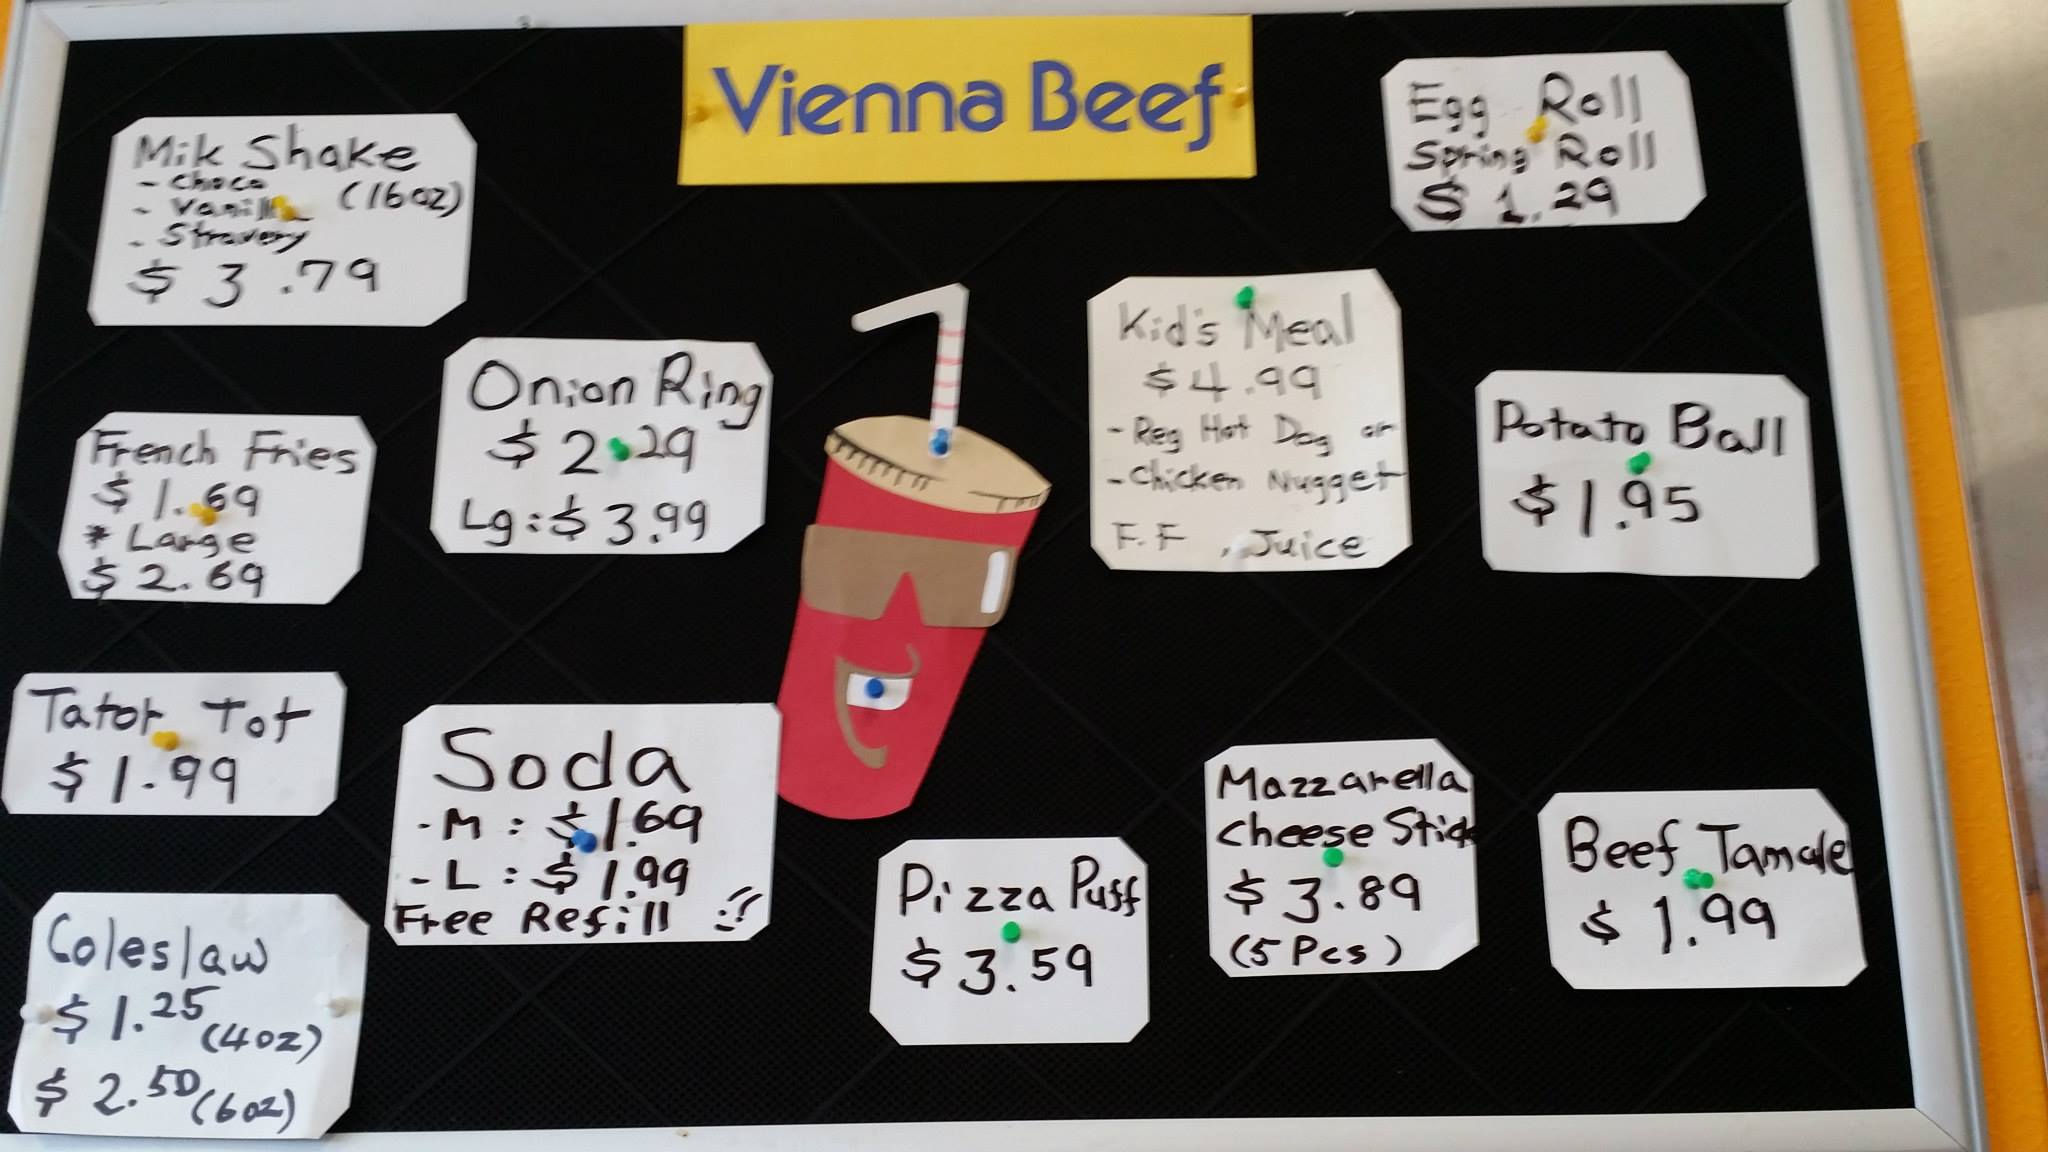 Vienna Beef
Mik Shake
- Choco
- Vanilla (16oz)
- Stravery
$ 3.79
Egg Roll
Spring Roll
$ 1.29
Onion Ring
$ 2.29
Lg: $ 3.99
Kid's Meal
$ 4.99
- Reg Hot Dog or
- Chicken Nugget
F.F , Juice
French Fries
$ 1.69
* Large
$ 2.69
Potato Ball
$ 1.95
Tator Tot
$ 1.99
Soda
- M : $ 1.69
- L : $ 1.99
Free Refill !!
Mazzarella
Cheese Stick
$ 3.89
(5 Pcs)
Beef Tamale
$ 1.99
Pizza Puff
$ 3.59
Coleslaw
$ 1.25 (4oz)
$ 2.50 (6oz)